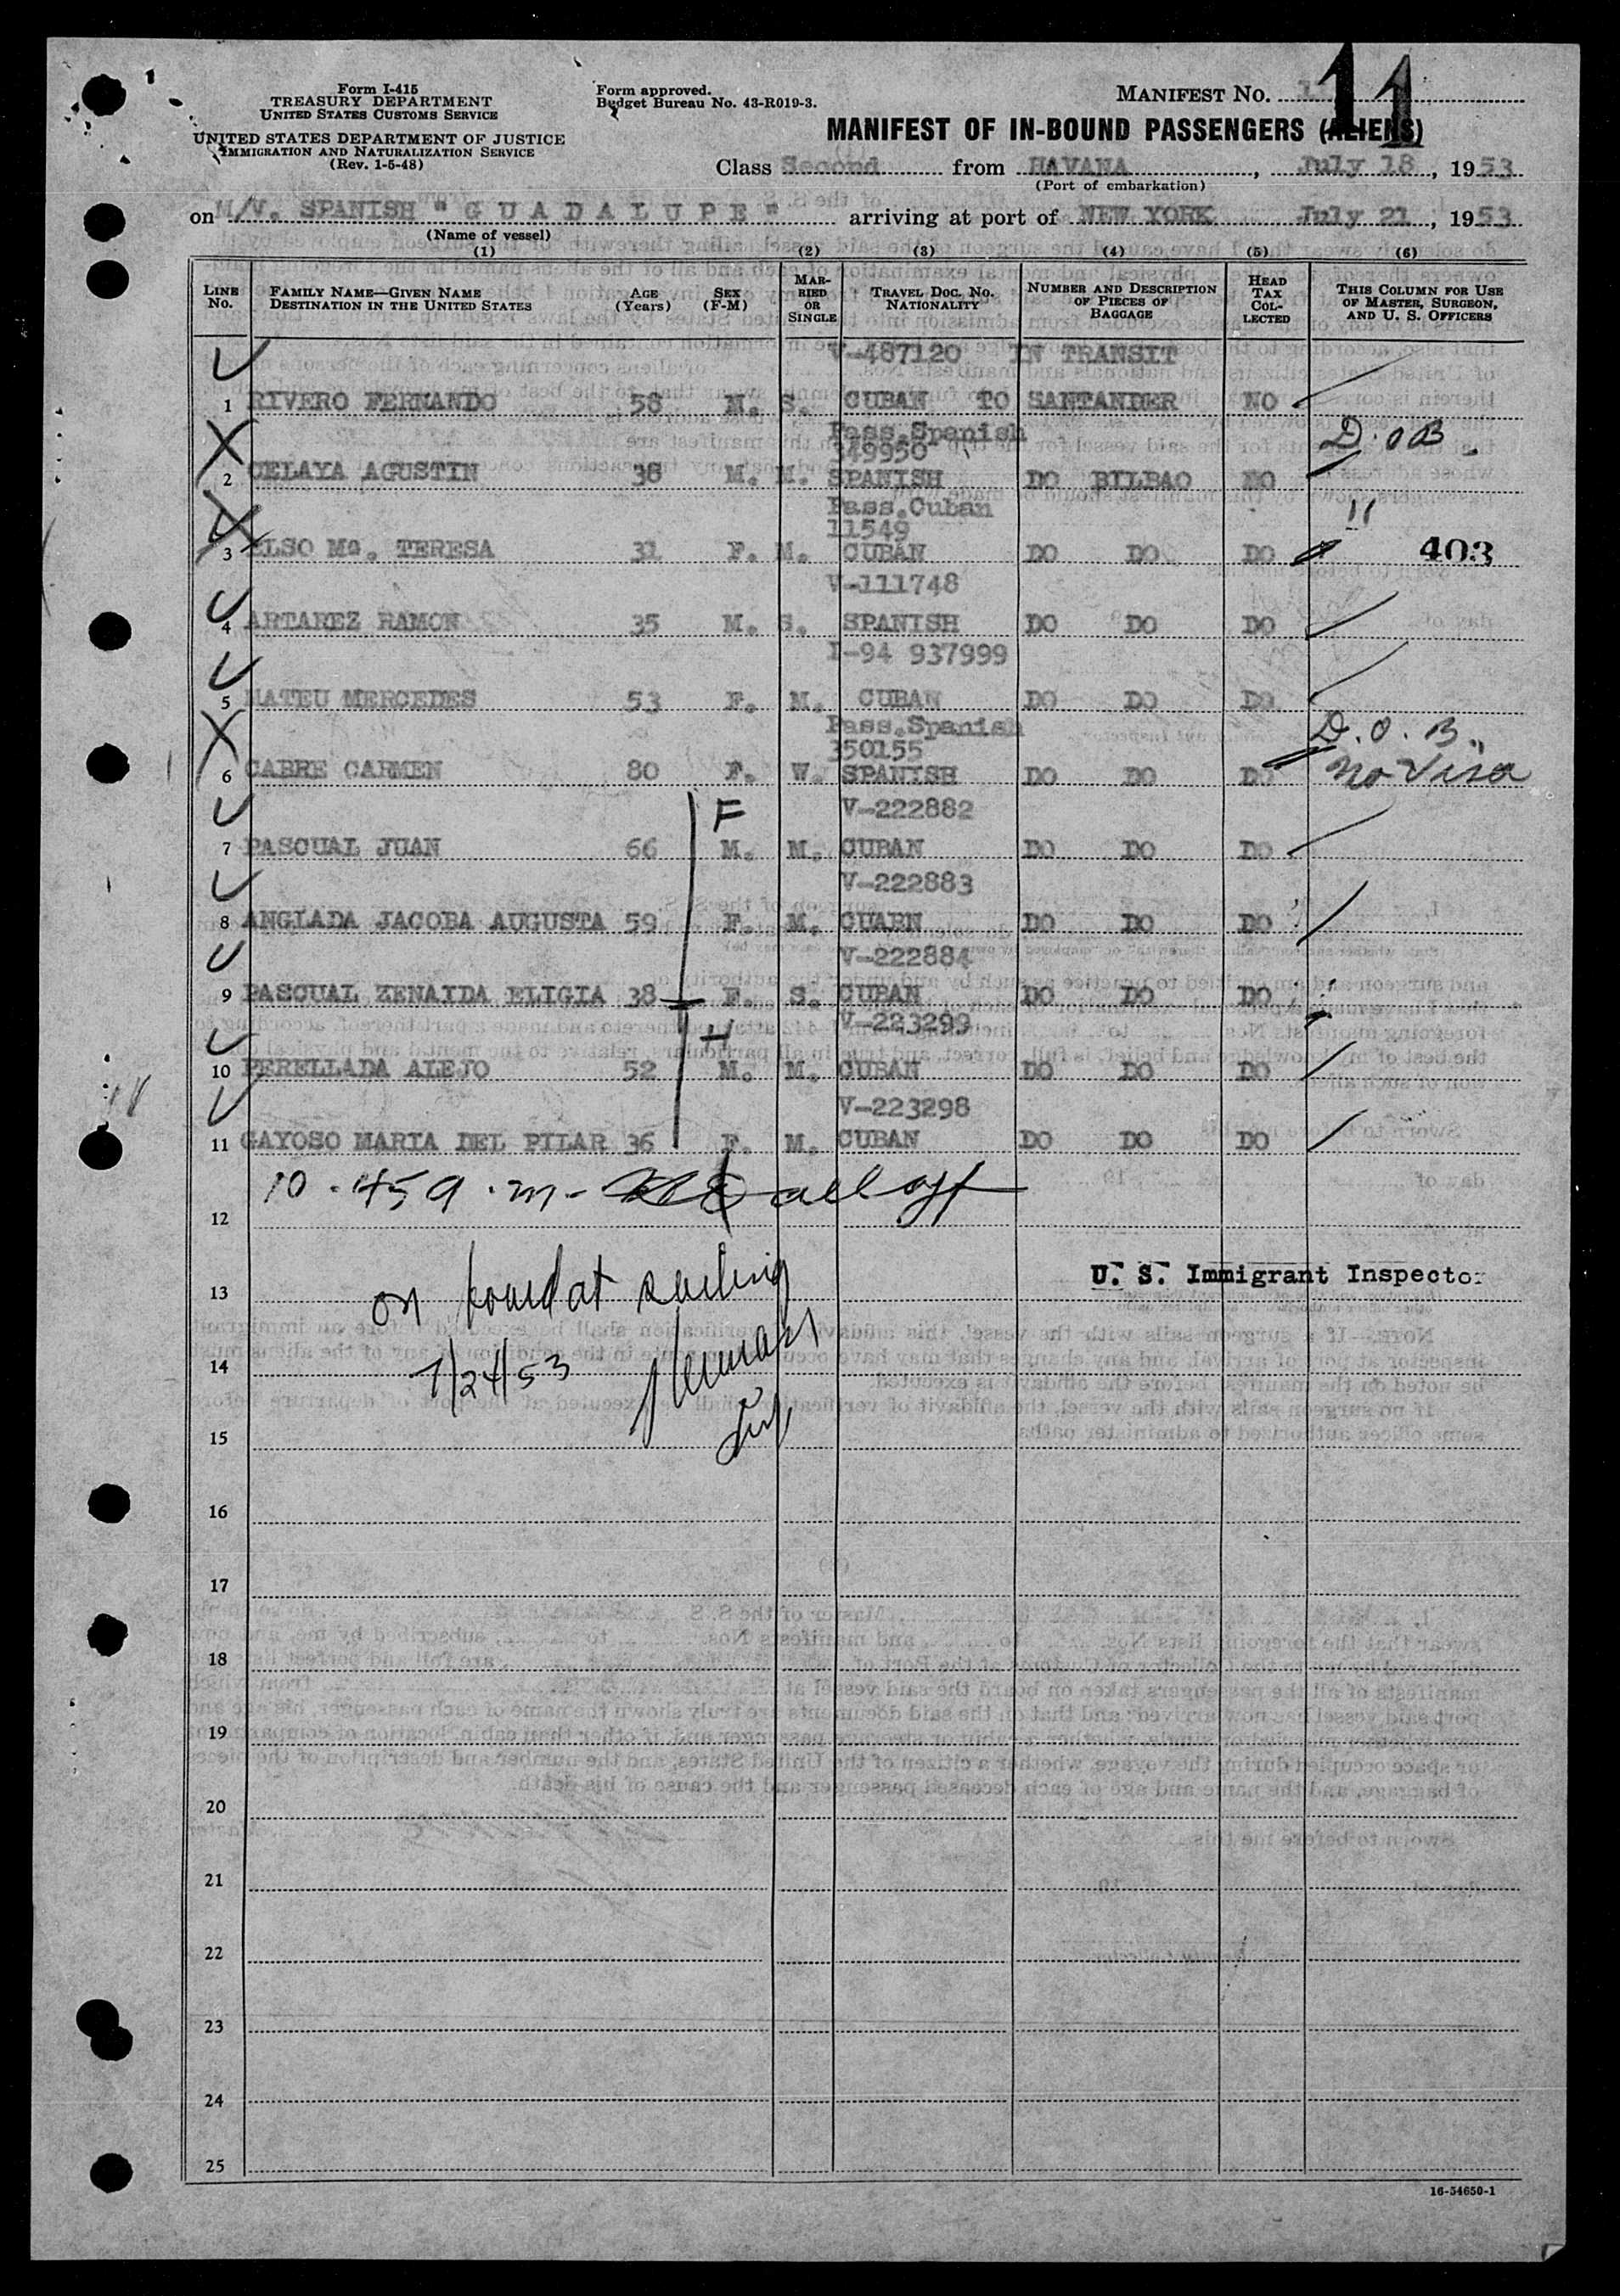 Form I-415
TREASURY DEPARTMENT
UNITED STATES CUSTOMS SERVICE
UNITED STATES DEPARTMENT OF JUSTICE
IMMIGRATION AND NATURALIZATION SERVICE
(Rev. 1-5-48)
Form approved.
Budget Bureau No. 43-R019-3.
MANIFEST NO. 11
MANIFEST OF IN-BOUND PASSENGERS (ALIENS)
Class Second from HAVANA, July 18, 1953
(Port of embarkation)
on M/V. SPANISH "GUADALUPE" arriving at port of NEW YORK July 21, 1953
(Name of vessel)
(1) (2) (3) (4) (5) (6)
LINE No. FAMILY NAME—GIVEN NAME DESTINATION IN THE UNITED STATES AGE (Years) SEX (F-M) MARRIED OR SINGLE TRAVEL DOC. NO. NATIONALITY NUMBER AND DESCRIPTION OF PIECES OF BAGGAGE HEAD TAX COLLECTED THIS COLUMN FOR USE OF MASTER, SURGEON, AND U. S. OFFICERS
V-487120 IN TRANSIT
1 RIVERO FERNANDO 58 M. S. CUBAN TO SANTANDER NO
Pass.Spanish D.O.B.
349950
2 CELAYA AGUSTIN 38 M. M. SPANISH DO BILBAO NO
Pass.Cuban "
11549
3 ELSO Mª. TERESA 31 F. M. CUBAN DO DO DO 403
V-111748
4 ARTAREZ RAMON 35 M. S. SPANISH DO DO DO
I-94 937999
5 MATEU MERCEDES 53 F. M. CUBAN DO DO DO
Pass.Spanish D.O.B.,
350155
6 CABRE CARMEN 80 F. W. SPANISH DO DO DO No Visa
F V-222882
7 PASCUAL JUAN 66 M. M. CUBAN DO DO DO
V-222883
8 ANGLADA JACOBA AUGUSTA 59 F. M. CUABN DO DO DO
V-222884
9 PASCUAL ZENAIDA ELIGIA 38 F. S. CUBAN DO DO DO
H V-223299
10 PERELLADA ALEJO 52 M. M. CUBAN DO DO DO
V-223298
11 GAYOSO MARIA DEL PILAR 36 F. M. CUBAN DO DO DO
10.45 a.m- all off
12
13 on board at sailing U. S. Immigrant Inspector
14 7/24/53
15
16
17
18
19
20
21
22
23
24
25
16-54650-1